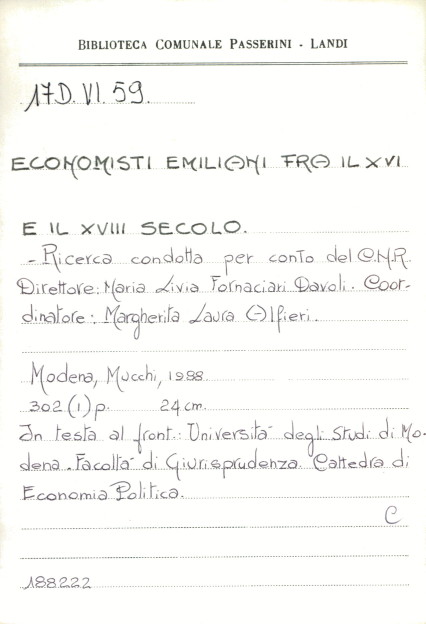 BIBLIOTECA COMUNALE PASSERINI - LANDI
17D. VI. 59.
ECONOMISTI EMILIANI FRA IL XVI
E IL XVIII SECOLO.
- Ricerca condotta per conto del C.N.R.
Direttore: Maria Livia Fornaciari Davoli. Coor-
dinatore: Margherita Laura Alfieri.
Modena, Mucchi, 1988.
302 (1) p. 24 cm.
In testa al front.: Università degli Studi di Mo-
dena. Facoltà di Giurisprudenza. Cattedra di
Economia Politica.
C
188222